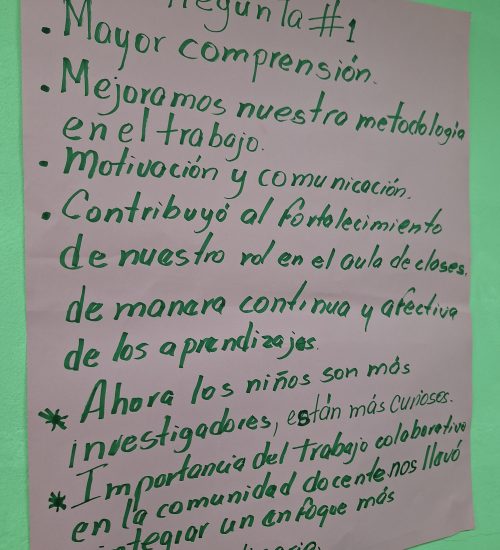 Pregunta #1
. Mayor comprensión.
. Mejoramos nuestra metodología
en el trabajo.
. Motivación y comunicación.
. Contribuyó al fortalecimiento
de nuestro rol en el aula de clases,
de manera continua y afectiva
de los aprendizajes.
* Ahora los niños son más
investigadores, están más curiosos.
* Importancia del trabajo colaborativo
en la comunidad docente, nos llevó
integrar un enfoque más